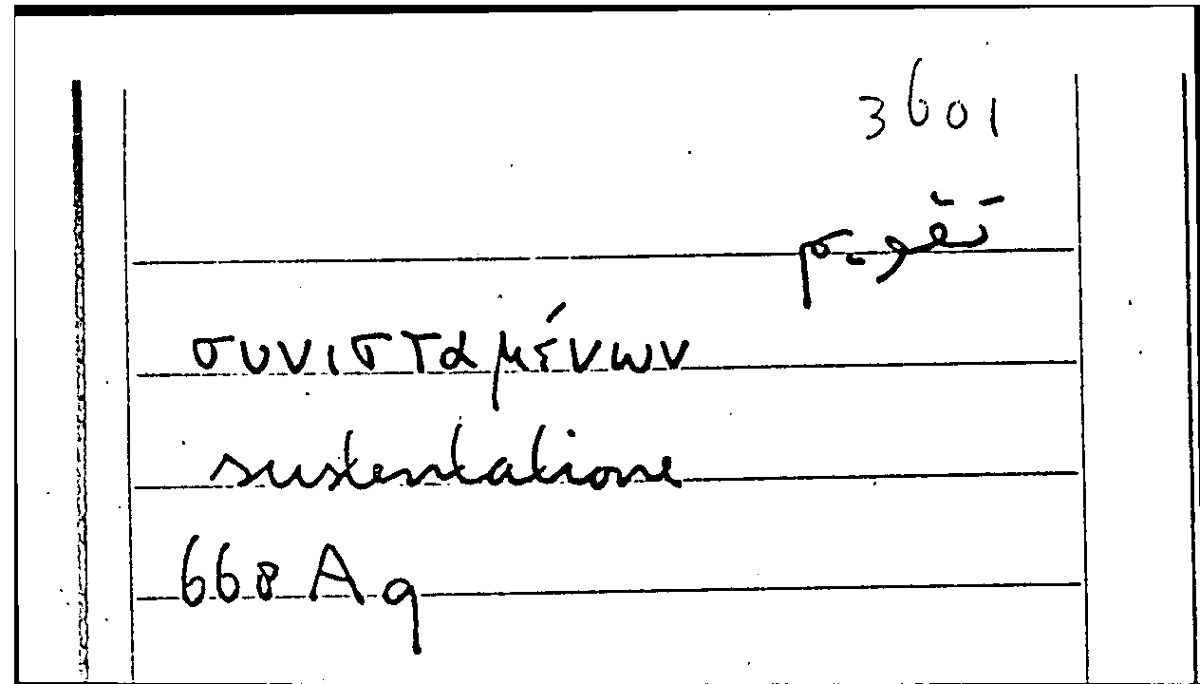 3601
συνισταμένων
sustentatione
668 A 9